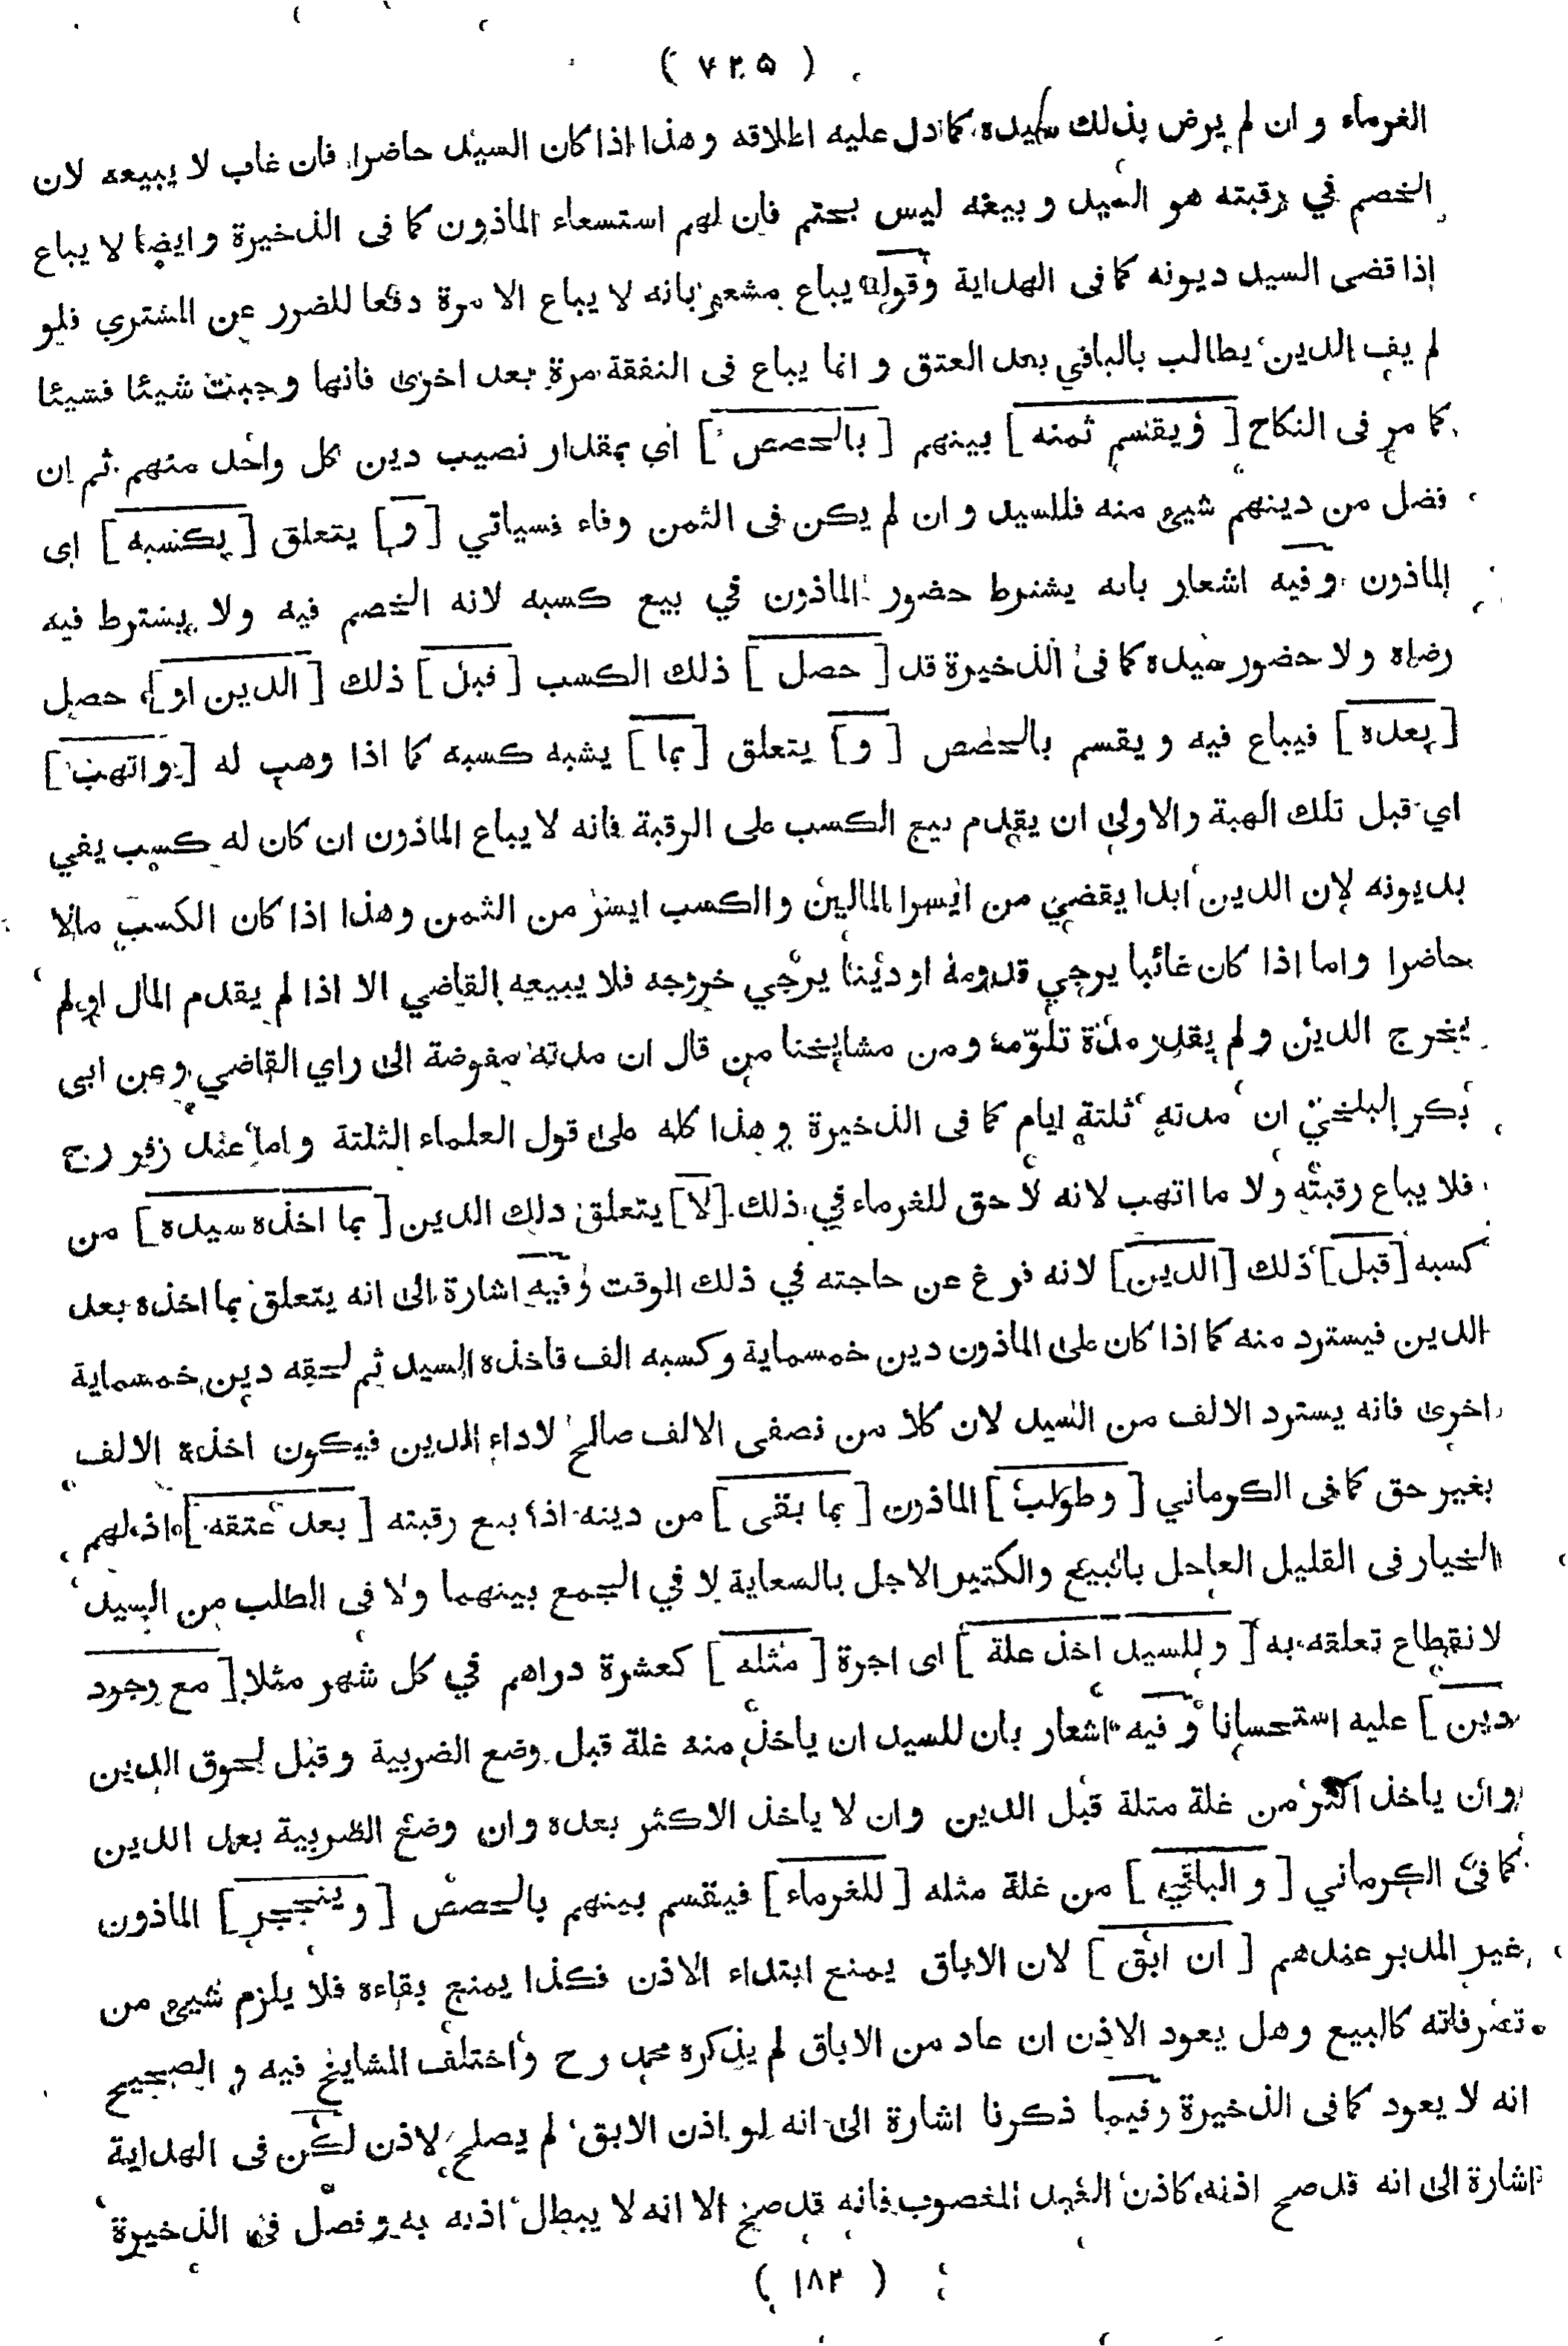 ( ٧٢٥ )
الغرماء و ان لم يرض بذلك سيده كما دل عليه اطلاقه وهذا اذا كان السيد حاضرا فان غاب لا يبيعه لان
الخصم في رقبته هو السيد و بيعه ليس بحتم فان لهم استسعاء الماذون كما فى الذخيرة و ايضا لا يباع
اذا قضى السيد ديونه كما فى الهداية وقوله يباع مشعر بانه لا يباع الا مرة دفعا للضرر عن المشتري فلو
لم يف الدين يطالب بالباقي بعد العتق و انما يباع فى النفقة مرة بعد اخرى فانها وجبت شيئا فشيئا
كما مر فى النكاح [ ويقسم ثمنه ] بينهم [ بالحصص ] اي بمقدار نصيب دين كل واحد منهم ثم ان
فضل من دينهم شيئ منه فللسيد و ان لم يكن فى الثمن وفاء فسياتي [ و ] يتعلق [ بكسبه ] اى
الماذون وفيه اشعار بانه يشترط حضور الماذون في بيع كسبه لانه الخصم فيه ولا يشترط فيه
رضاه ولا حضور سيده كما فى الذخيرة قد [ حصل ] ذلك الكسب [ قبل ] ذلك [ الدين او ] حصل
[ بعده ] فيباع فيه و يقسم بالحصص [ و ] يتعلق [ بما ] يشبه كسبه كما اذا وهب له [ واتهب ]
اي قبل تلك الهبة والاولى ان يقدم بيع الكسب على الرقبة فانه لا يباع الماذون ان كان له كسب يفي
بديونه لان الدين ابدا يقضي من ايسر المالين والكسب ايسر من الثمن وهذا اذا كان الكسب مالا
حاضرا واما اذا كان غائبا يرجي قدومه او دينا يرجي خروجه فلا يبيعه القاضي الا اذا لم يقدم المال او لم
يخرج الدين و لم يقدر مدة تلومه ومن مشايخنا من قال ان مدته مفوضة الى راي القاضي وعن ابى
بكر البلخي ان مدته ثلثة ايام كما فى الذخيرة وهذا كله على قول العلماء الثلثة واما عند زفر رح
فلا يباع رقبته ولا ما اتهب لانه لا حق للغرماء في ذلك [ لا ] يتعلق ذلك الدين [ بما اخذه سيده ] من
كسبه [ قبل ] ذلك [ الدين ] لانه فرغ عن حاجته في ذلك الوقت وفيه اشارة الى انه يتعلق بما اخذه بعد
الدين فيسترد منه كما اذا كان على الماذون دين خمسماية وكسبه الف فاخذه السيد ثم لحقه دين خمسماية
اخرى فانه يسترد الالف من السيد لان كلا من نصفى الالف صالح لاداء الدين فيكون اخذه الالف
بغير حق كما فى الكرماني [ وطولب ] الماذون [ بما بقى ] من دينه اذا بيع رقبته [ بعد عتقه ] اذ لهم
الخيار فى القليل العاجل بالبيع والكثير الاجل بالسعاية لا في الجمع بينهما ولا فى الطلب من السيد
لانقطاع تعلقه به [ وللسيد اخذ غلة ] اى اجرة [ مثله ] كعشرة دراهم في كل شهر مثلا [ مع وجود
دين ] عليه استحسانا وفيه اشعار بان للسيد ان ياخذ منه غلة قبل وضع الضريبة وقبل لحوق الدين
وان ياخذ اكثر من غلة مثلة قبل الدين وان لا ياخذ الاكثر بعده وان وضع الضريبة بعد الدين
كما فى الكرماني [ و الباقي ] من غلة مثله [ للغرماء ] فيقسم بينهم بالحصص [ وينحجر ] الماذون
غير المدبر عندهم [ ان ابق ] لان الاباق يمنع ابتداء الاذن فكذا يمنع بقاءه فلا يلزم شيئ من
تصرفاته كالبيع وهل يعود الاذن ان عاد من الاباق لم يذكره محمد رح واختلف المشايخ فيه و الصحيح
انه لا يعود كما فى الذخيرة وفيما ذكرنا اشارة الى انه لو اذن الابق لم يصلح لاذن لكن فى الهداية
اشارة الى انه قد صح اذنه كاذن العبد المغصوب فانه قد صح الا انه لا يبطل اذنه به وفصل فى الذخيرة
( ١٨٢ )